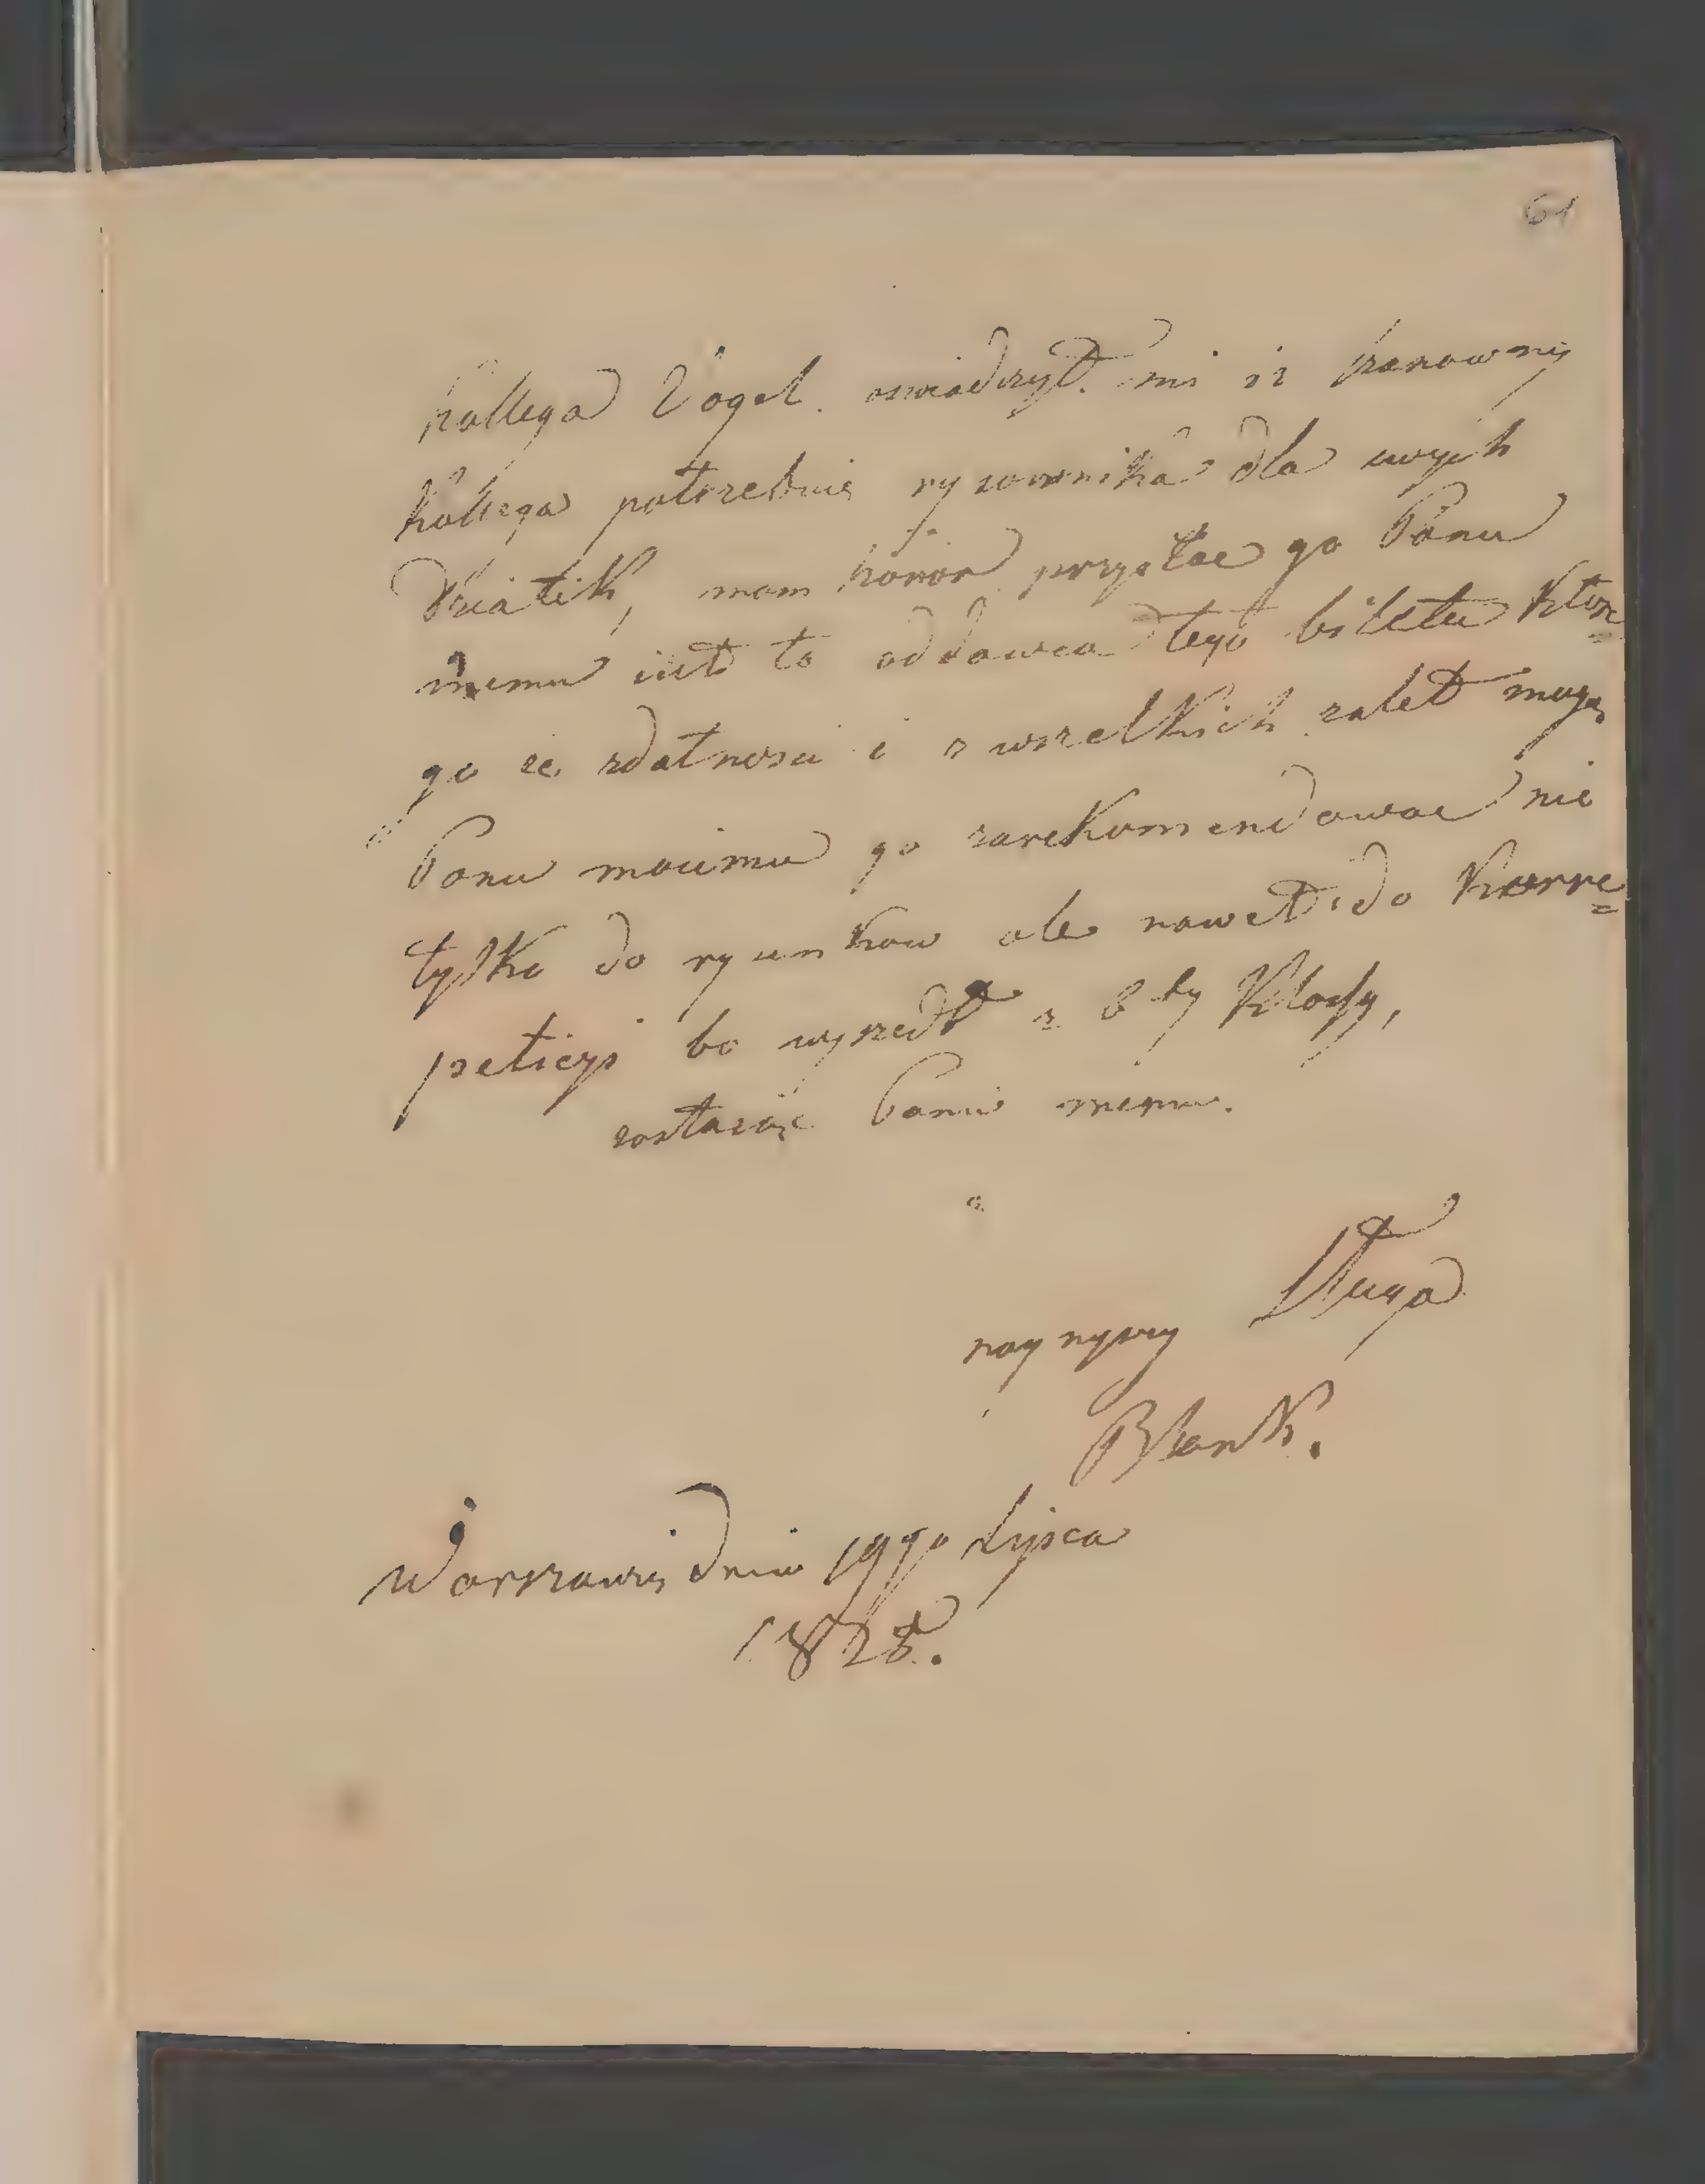 61
Kollega Vogel. oswiadczył mi iz szanowny
Kollega potrzebuie rysownika dla swych
Dziatek, mam honor przysłac go Panu
memu iest to oddawca tego biletu które=
go ze zdatnosci i z wszelkich zalet mogę
Panu moiemu go zarekomendowac nie
tylko do rysunkow ale nawet do Korre=
peticyi bo wyszedł z 6ty Klassy,
zostaiąc Panu memu.
Sługa
nayniższy
Blank.
Warszawie dnia 19go Lipca
1828.